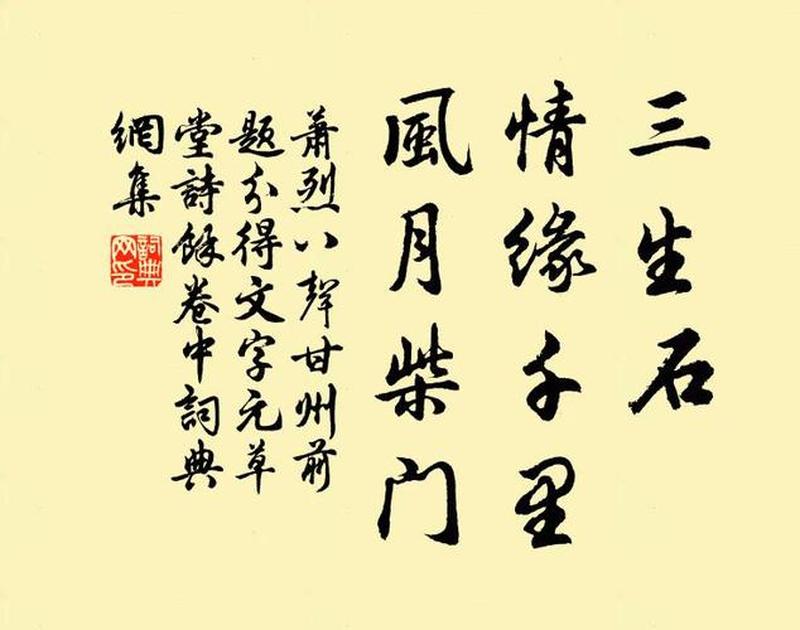 三生石
情緣千里
風月柴门
萧烈八聲甘州前
题分得文字元草
堂詩餘卷中詞典
網集
詞典
网印